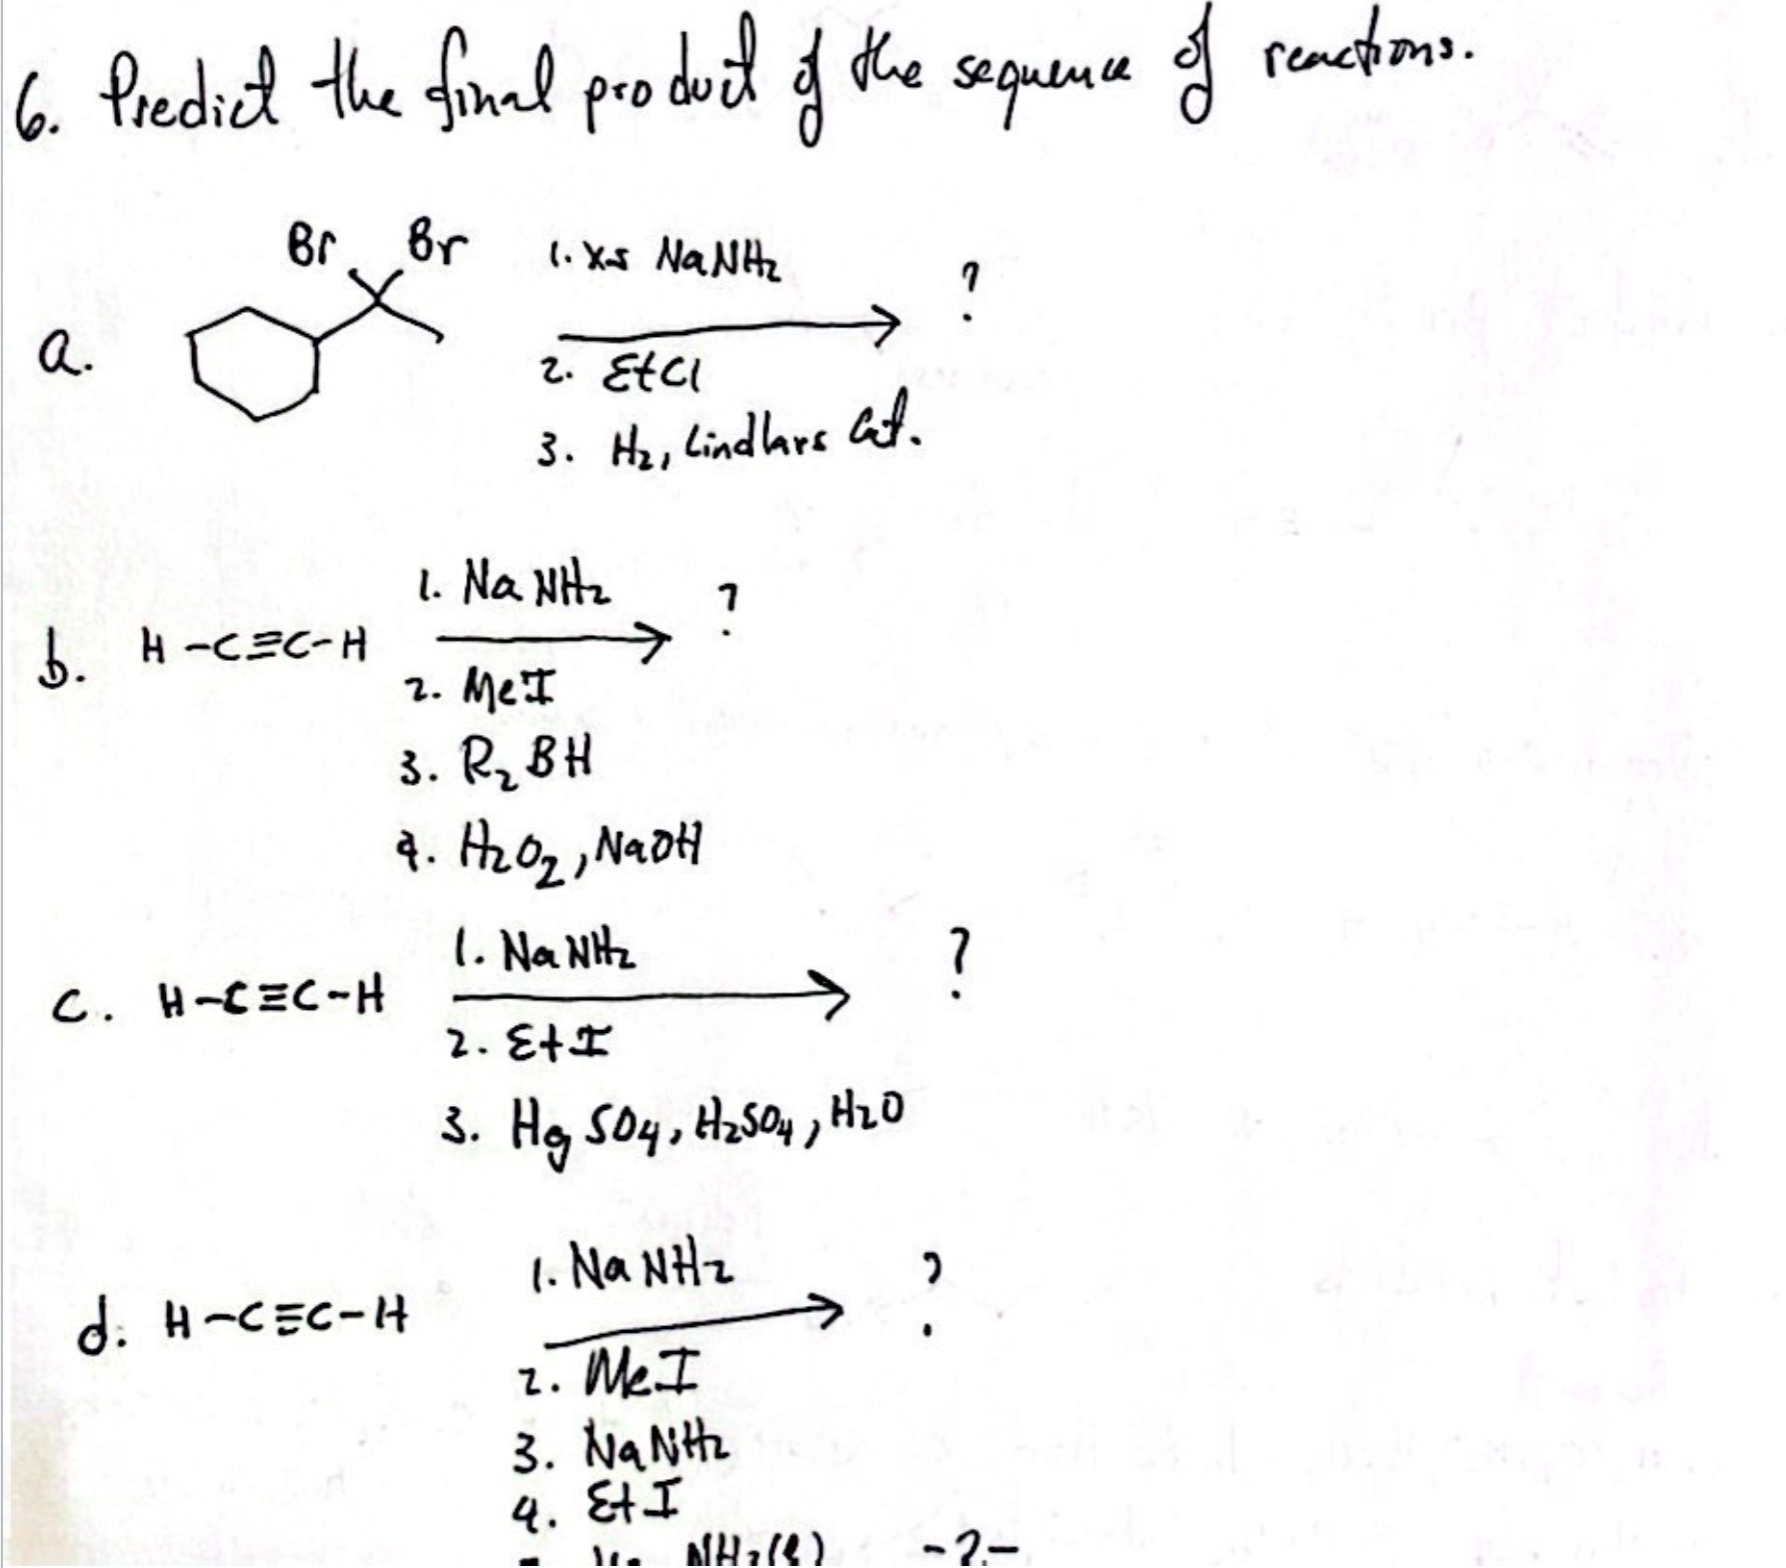 6. Predict the final product of the sequence of reactions.
Br Br
a.
1. xs NaNH2
?
2. EtCl
3. H2, Lindlars Cat.
b. H-C≡C-H
1. NaNH2
?
2. MeI
3. R2BH
4. H2O2, NaOH
c. H-C≡C-H
1. NaNH2
?
2. EtI
3. HgSO4, H2SO4, H2O
d. H-C≡C-H
1. NaNH2
?
2. MeI
3. NaNH2
4. EtI
NH3(l) -2-